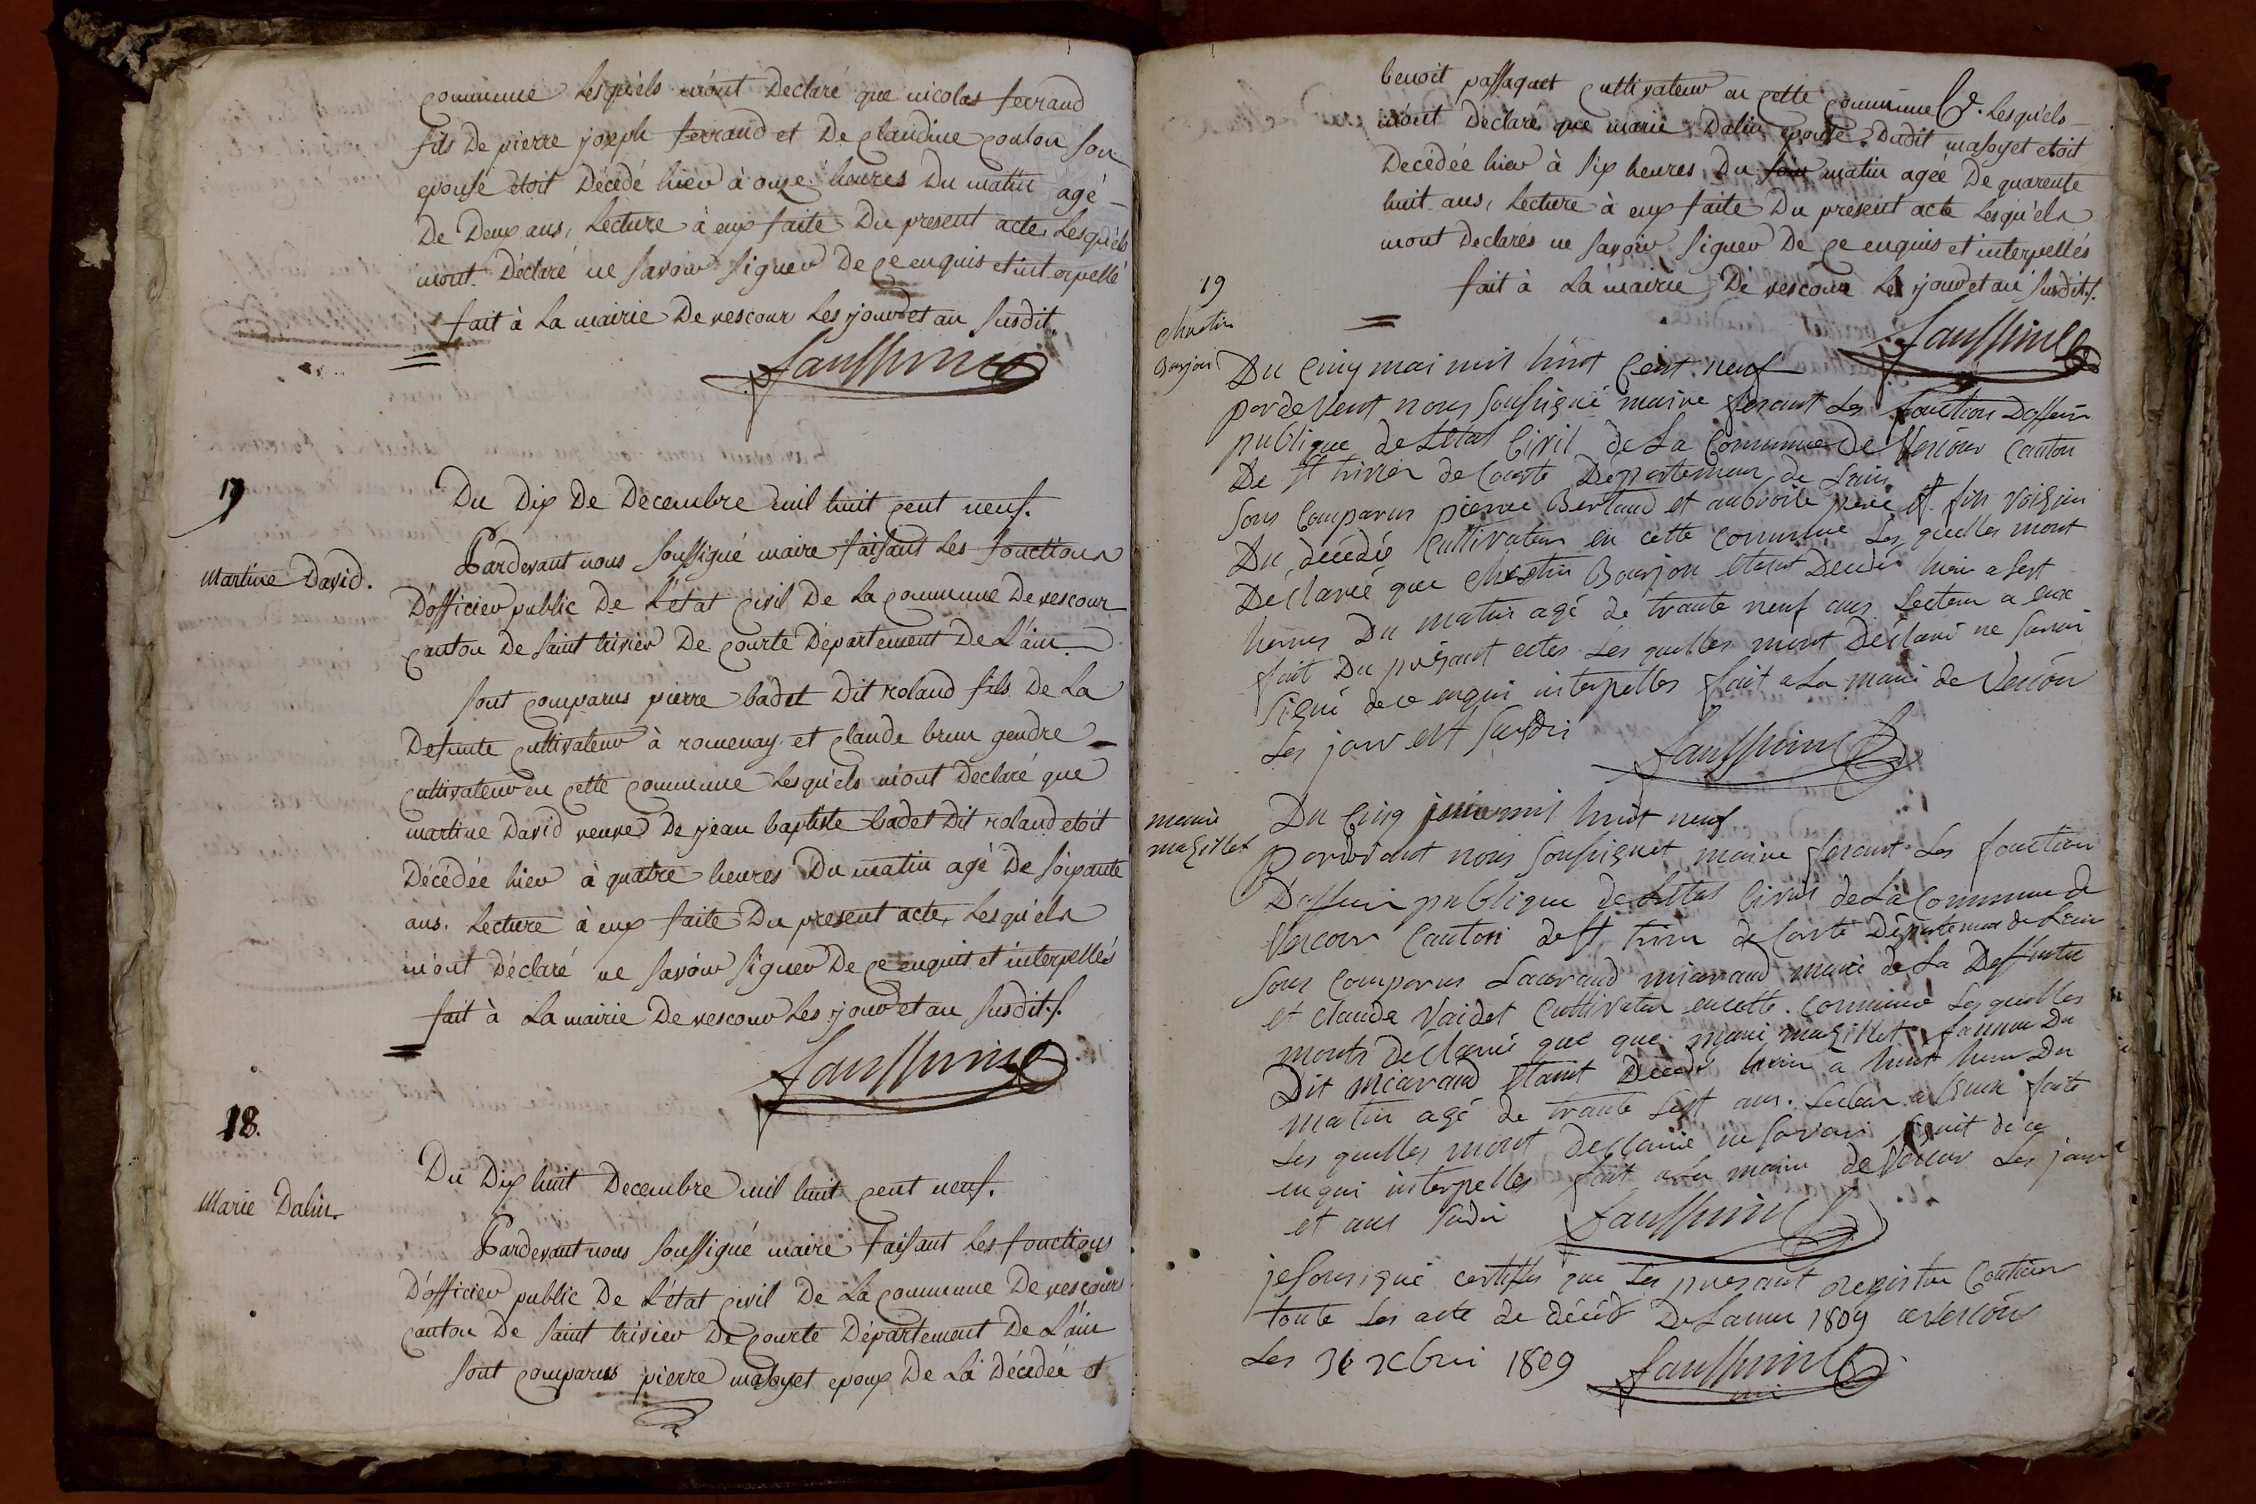 commune Lesquels m'ont Declaré que nicolas ferrand
fils De pierre joseph ferrand et De claudine coulon son
epouse etoit Décédé hier à onze heures Du matin agé
De Deux ans, Lecture à eux faite Du present acte, Lesquels
mont Déclaré ne savoir signer De ce enquis et interpellé
fait à La mairie De vescour Les jour et an susdit.
17
Martine David.
Du Dix De Decembre mil huit cent neuf.
Pardevant nous soussigné maire faisant Les fonctions
D'officier public De L'état civil De La commune De vescour
canton De saint trivier De courte Département De L'ain
sont comparus pierre badet Dit roland fils De La
Defunte cultivateur à romenay et claude brun gendre
cultivateur en cette commune Lesquels m'ont Declaré que
martine David veuve De jean baptiste badet Dit roland etoit
Décédée hier à quatre heures Du matin agé De soixante
ans. Lecture à eux faite Du present acte, Lesquels
m'ont Déclaré ne savoir signer De ce enquis et interpellés
fait à La mairie De vescour Les jour et an susdit.
18.
Marie Dalin.
Du Dix huit Decembre mil huit cent neuf.
Pardevant nous soussigné maire faisant Les fonctions
D'officier public De L'état civil De La commune De vescours
canton De saint trivier De courte Département De L'ain
sont comparus pierre maboyet epoux De La Décédée et
benoit passaquet cultivateur en cette commune Lesquels
m'ont Declaré que marie Dalin epouse Dudit maboyet etoit
Decédée hier à six heures Du soir matin ageé De quarente
huit ans, Lecture à eux faite Du present acte Lesquels
mont Declarés ne savoir signer De ce enquis et interpellés
fait à La mairie De vescour Les jour et an susdit.
19
Bourjon
Du Cinq mai mil huit Cent neuf
pardevent nous soussigné maire fesant Les fonction Doffisier
publique de Letat Civil de La Commune De Vescour Canton
De St trivier de Courte Departement de Lain
sons Comparus pierre Bertand et voizin
Du decédé Cultivateur en cette commune Les quelles mont
Déclaré que Bourjon etant Decédé hier a sest
heures Du matin agé de trante neuf ans Lecture a eux
fait Du présant actes Les quelles mont Déclaré ne savoir
signé de ce enqui interpelles fait a La mairi de Vescour
Les jour et susdit
marie
mazillet
Du Cinq juin mil huit neuf
pardevant nous sousignet maire fesant Les fonction
Doffisier publique de Letat Civil de La Commune de
Vescour Canton de St trivier de Courte Département de Lain
sons Comparus Laurand miarand marie de La Deffunte
et claude Vaidet Cultivateur en cette commune Les quelles
monts Déclaré que que marie mazillet famme Du
Dit miarand etant Decedé hier a huit heure Du
matin agé de trante sest ans. Lecture a Eeux faite
Les quelles mont Declaré ne savoir signit de ce
enqui interpelles fait a La mairie de Vescour Les jour
et ans susdit
je sousigné certifis que Les present registre Contient
toute Les acte de décéd De Lannee 1809 a Vescour
Les 31 xbri 1809